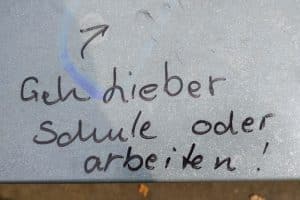 Geh lieber
Schule oder
arbeiten!